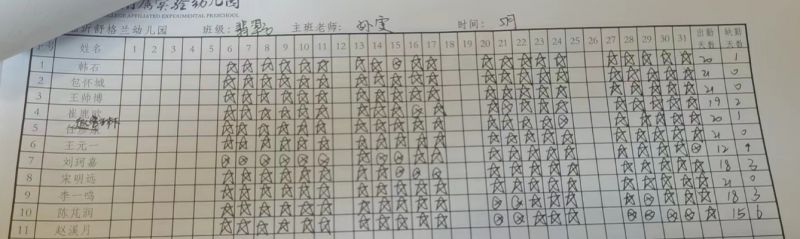 附属实验幼儿园
COLLEGE AFFILIATED EXPERIMENTAL PRESCHOOL
舒格兰幼儿园 班级: 主班老师: 时间: 5月
序号 姓名 1 2 3 4 5 6 7 8 9 10 11 12 13 14 15 16 17 18 19 20 21 22 23 24 25 26 27 28 29 30 31 出勤天数 缺勤天数
1 韩石 20 1
2 包怀城 21 0
3 王帅博 21 0
4 19 2
5 20 1
6 王元一 21 0
7 刘珂嘉 12 9
8 宋明远 18 3
9 李一鸣 21 0
10 陈芃润 18 3
11 赵溪月 15 6